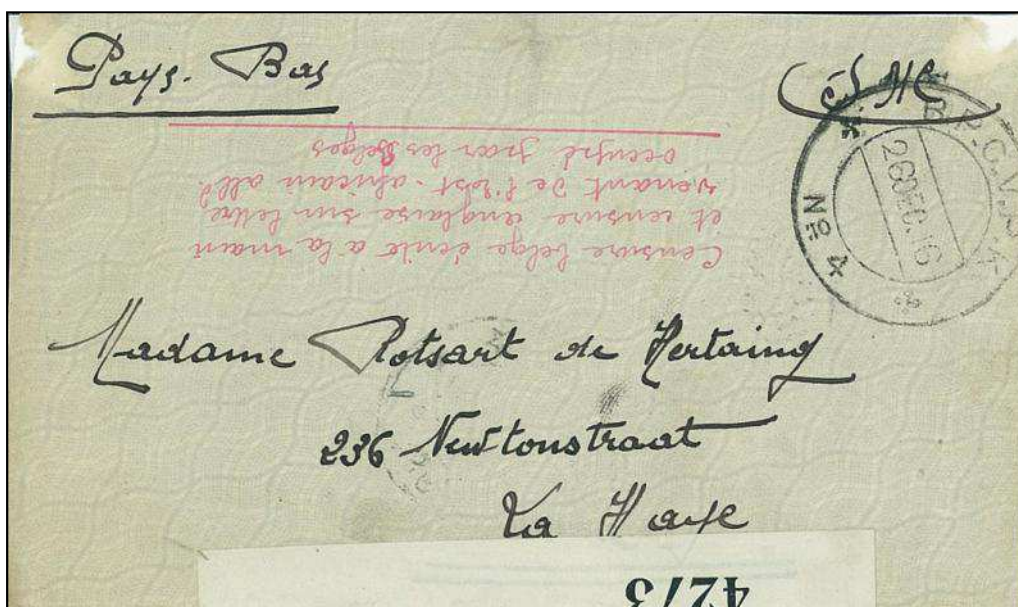 Pays-Bas
(S.M.)
B.P.C.V.P.K.
28 DEC. 16
Nº 4
Censure belge écrite à la main
et censure anglaise sur lettre
venant de l'Est-africain all.
occupé par les Belges
Madame Rotsart de Hertaing
236 Newtonstraat
La Haye
4273